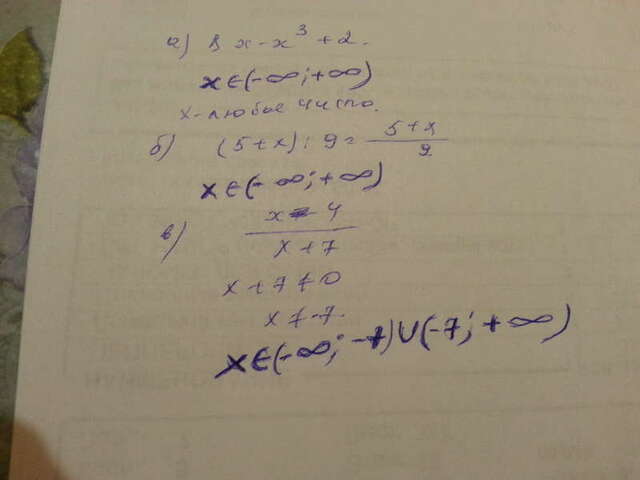 а) 8x-x³+2.
x∈(-∞;+∞)
x-любое число.
б) (5+x):9=5+x/9
x∈(-∞;+∞)
в) x-4/x+7
x+7≠0
x≠-7.
x∈(-∞;-7)∪(-7;+∞)